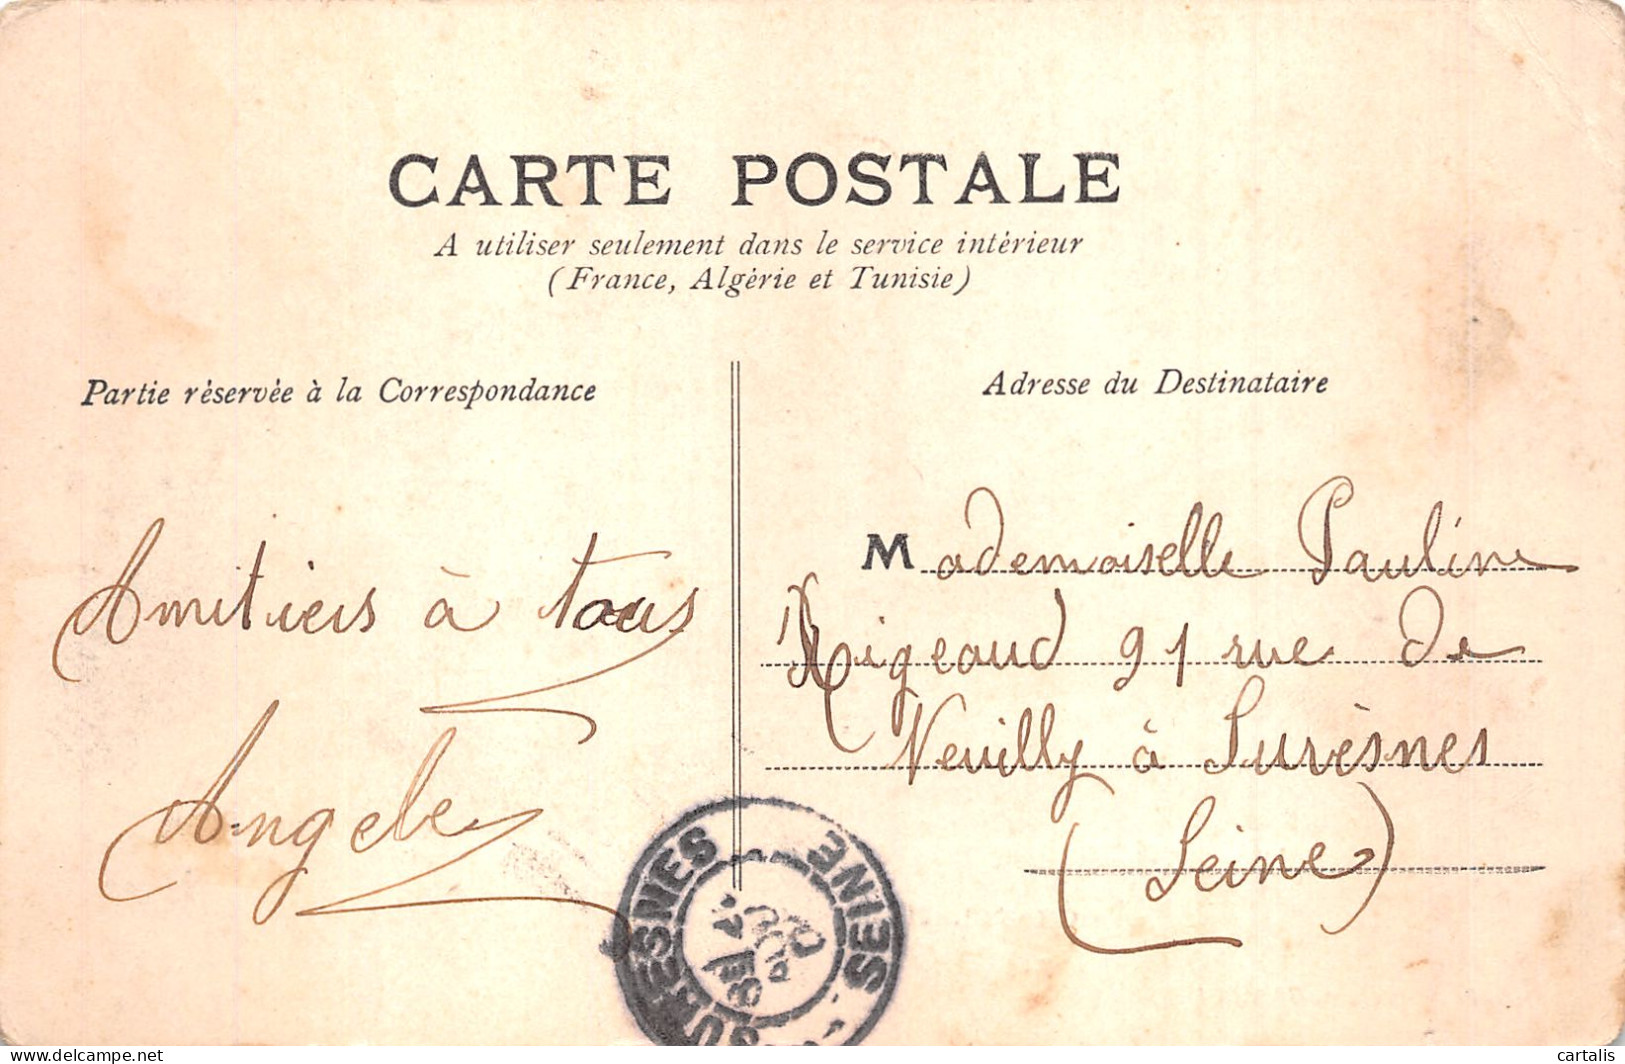 CARTE POSTALE
A utiliser seulement dans le service intérieur
(France, Algérie et Tunisie)
Partie réservée à la Correspondance
Adresse du Destinataire
Amitiers à tous
Angele
Mademoiselle Pauline
Rigeaud 91 rue de
Neuilly à Surèsnes
(Seine)
SURESNES SEINE
www.delcampe.net
cartalis